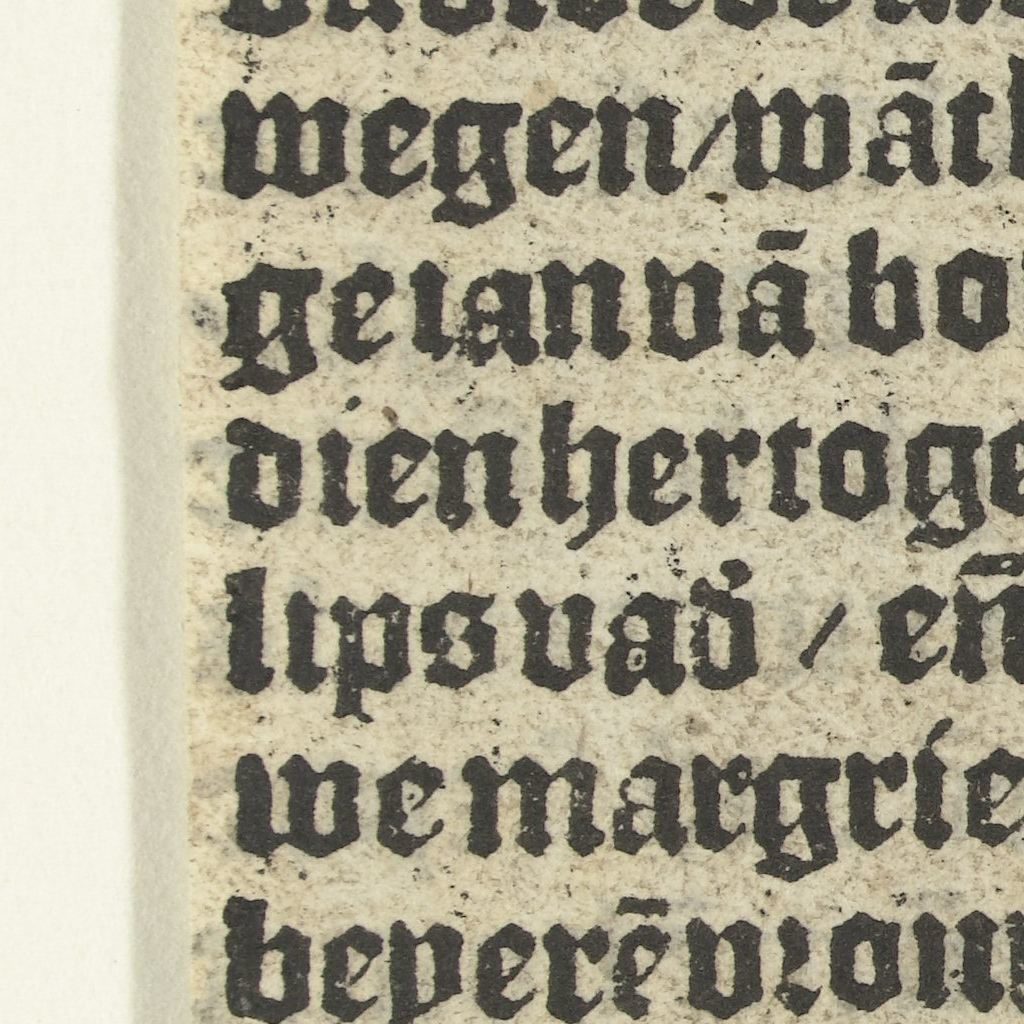 wegen / wāt
geian vā bo
dien hertoge
lips vad̉ / en̄
we margrie
beyerē vꝛou